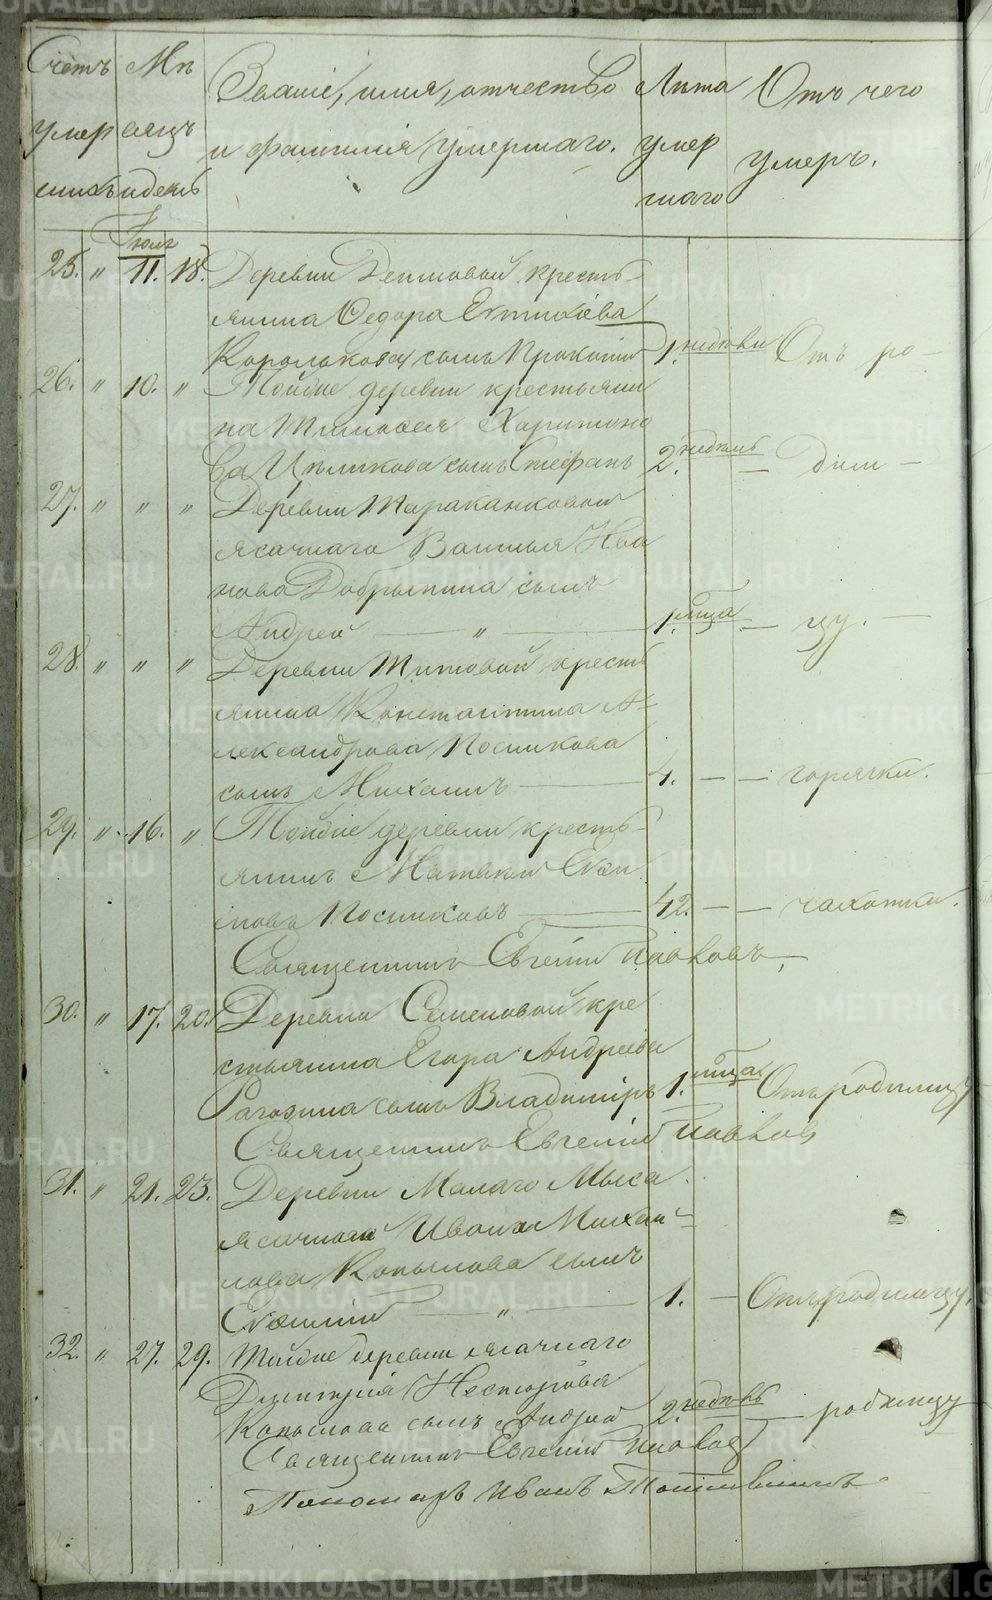 Счетъ Мѣ Званіе, имя, отчество Лѣта Отъ чего
умер сяцъ и фамилія умершаго. умер умеръ.
шихъ и день шаго
Іюль
25. " 11. 18. Деревни крестья-
янина Федора
Королькова сынъ Прокопій 1. недѣли Отъ ро-
26. " 10. " Тойже деревни крестьяни
на Тимофея Харитоно
ва Цѣликова сынъ Стефанъ 2. недѣль — дим —
27. " " " Деревни Тараканковой
ясачнаго Василья Ива
нова Добрынина сынъ
Андрей — " — 1. мца — цу. —
28. " " " Деревни Титовой кресть
янина Константина А-
лександрова Посникова
сынъ Михаилъ — 4. — — горячки.
29. " 16. " Тойже деревни кресть-
янинъ Матвѣй
нова Посниковъ — 42. — — чахотки.
Священникъ Евгеній Поповъ
30. " 17. 20. Деревни Семеновой кре
стьянина Егора Андреева
Рагозина сынъ Владиміръ 1. мца. Отъ родимцу
Священникъ Евгеній Попов
31. " 21. 23. Деревни Малаго Мыса
ясачнаго Ивана Михаи-
лова Копылова сынъ
Евгеній — " — 1. — Отъ родимцу.
32. " 27. 29. Тойже деревни ясачнаго
Димитрія Несторова
Копылова сынъ Андрей 2. недѣль — родимцу
Священникъ Евгеній Попов
Пономарь Иванъ
METRIKI.GASO-URAL.RU